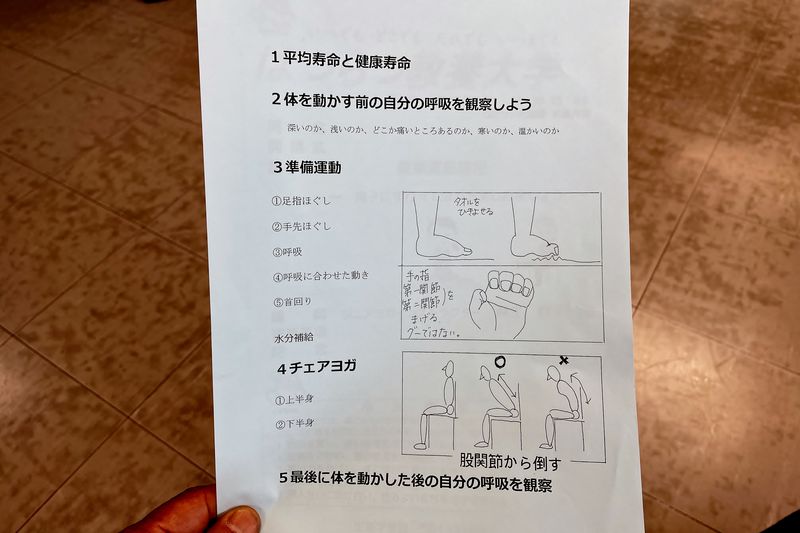 1平均寿命と健康寿命
2体を動かす前の自分の呼吸を観察しよう
深いのか、浅いのか、どこか痛いところあるのか、寒いのか、温かいのか
3準備運動
①足指ほぐし
②手先ほぐし
③呼吸
④呼吸に合わせた動き
⑤首回り
水分補給
タオルを
ひきよせる
手の指
第一関節
第二関節)を
まげる
グーではない。
4チェアヨガ
①上半身
②下半身
股関節から倒す
5最後に体を動かした後の自分の呼吸を観察